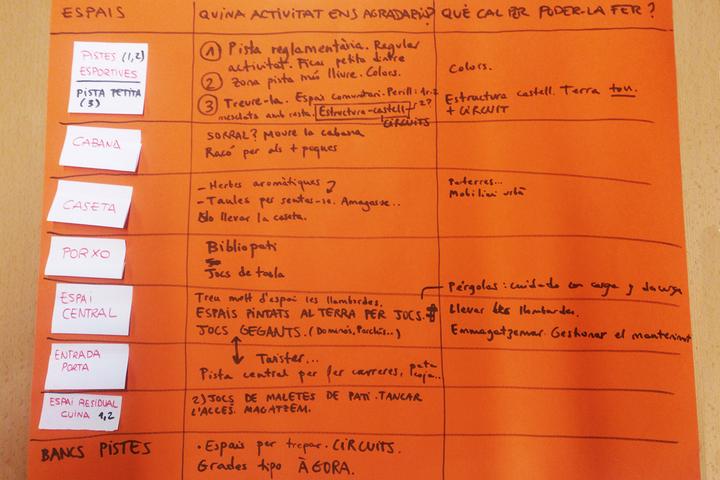 ESPAIS
QUINA ACTIVITAT ENS AGRADARIA?
QUÈ CAL PER PODER-LA FER?
PISTES (1,2)
ESPORTIVES
PISTA PETITA
(3)
1 Pista reglamentària. Regular
activitat. Ficar petits dintre
2 Zona pista més lliure. Colors.
3 Treure-la. Espai comunitari. Perill: 1r.2
mesclats amb resta. Estructura-castell
CIRCUITS
Colors.
Estructura castell. Terra tou.
+ CIRCUIT
CABANA
SORRAL? Moure la cabana
Racó per als + peques
CASETA
- Herbes aromàtiques
- Taules per sentar-se. Amagar-se..
No llevar la caseta.
Mobiliari urbà
PORXO
Bibliopati
Jocs de taula
ESPAI
CENTRAL
Treu molt d'espai les llambordes.
ESPAIS PINTATS AL TERRA PER JOCS.
JOCS GEGANTS. (Dominós, Parchís..)
Pérgolas: cuidado con carga y descarga
Llevar les llambordes.
Emmagatzemar. Gestionar el manteniment
ENTRADA
PORTA
Twister...
Pista central per fer carreres, pata
coja..
ESPAI RESIDUAL
CUINA 1,2
2) JOCS DE MALETES DE PATI. TANCAR
L'ACCÉS. MAGATZEM.
BANCS PISTES
· Espais per trepar. CIRCUITS.
Grades tipo ÀGORA.